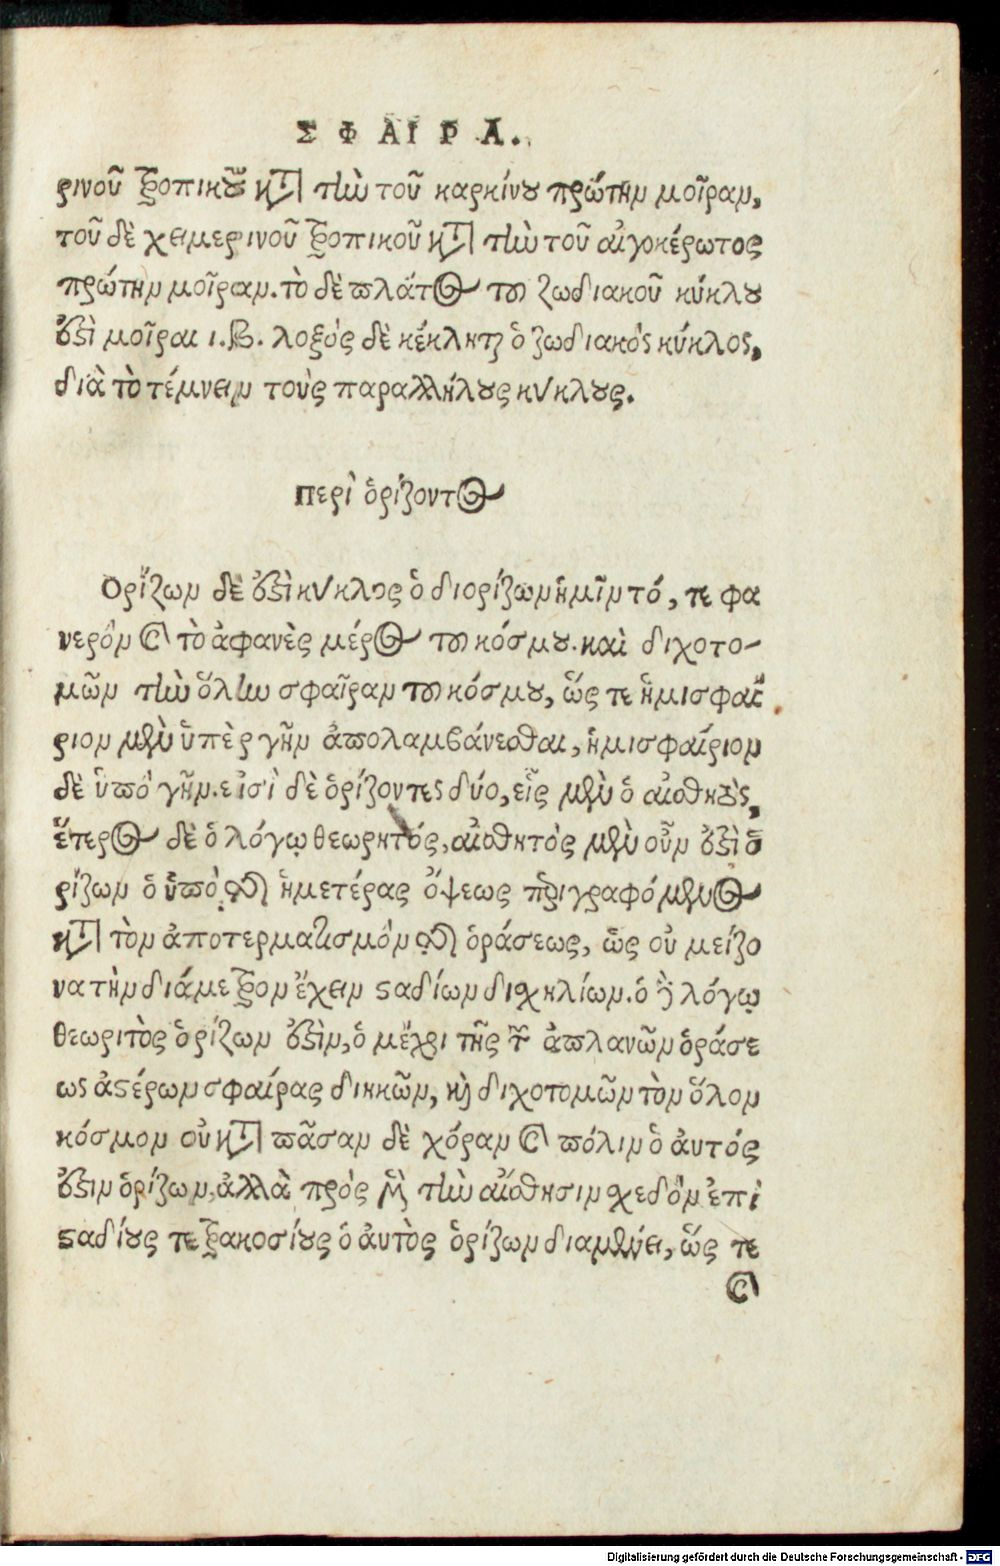 ΣΦΑΙΡΑ.
ρινοῦ τροπικοῦ κατὰ τὴν τοῦ καρκίνου πρώτην μοῖραν,
τοῦ δὲ χειμερινοῦ τροπικοῦ κατὰ τὴν τοῦ αἰγοκέρωτος
πρώτην μοῖραν. τὸ δὲ πλάτος τοῦ ζωδιακοῦ κύκλου
ἐστὶ μοῖραι ι.β. λοξὸς δὲ κέκληται ὁ ζωδιακὸς κύκλος,
διὰ τὸ τέμνειν τοὺς παραλλήλους κύκλους.
Περὶ ὁρίζοντος
Ορίζων δέ ἐστὶ κύκλος ὁ διορίζων ἡμῖν τό, τε φα
νερὸν καὶ τὸ ἀφανὲς μέρος τοῦ κόσμου. καὶ διχοτο-
μῶν τὴν ὅλην σφαῖραν τοῦ κόσμου, ὥς τε ἡμισφαί
ριον μὲν ὑπὲρ γῆν ἀπολαμβάνεσθαι, ἡμισφαίριον
δὲ ὑπὸ γῆν. εἰσὶ δὲ ὁρίζοντες δύο, εἷς μὲν ὁ αἰσθητὸς,
ἕτερος δὲ ὁ λόγῳ θεωρητός, αἰσθητὸς μὲν οὖν ἐστὶ ὁ
ρίζων ὁ ὑπὸ τῆς ἡμετέρας ὄψεως περιγραφόμενος
κατὰ τὸν ἀποτερματισμὸν τῆς ὁράσεως, ὡς οὐ μείζο
να τὴν διάμετρον ἔχειν σταδίων δισχηλίων. ὁ δὲ λόγῳ
θεωριτὸς ὁρίζων ἐστὶν, ὁ μέχρι τῆς τῶν ἀπλανῶν ὁράσε
ως ἀστέρων σφαίρας διηκῶν, καὶ διχοτομῶν τὸν ὅλον
κόσμον οὐ κατὰ πᾶσαν δὲ χόραν καὶ πόλιν ὁ ἀυτός
ἐστιν ὁρίζων, ἀλλὰ πρὸς μὲν τὴν αἴσθησιν σχεδὸν ἐπὶ
σταδίους τετρακοσίους ὁ ἀυτὸς ὁρίζων διαμένει, ὥς τε
καὶ
Digitalisierung gefördert durch die Deutsche Forschungsgemeinschaft - DFG